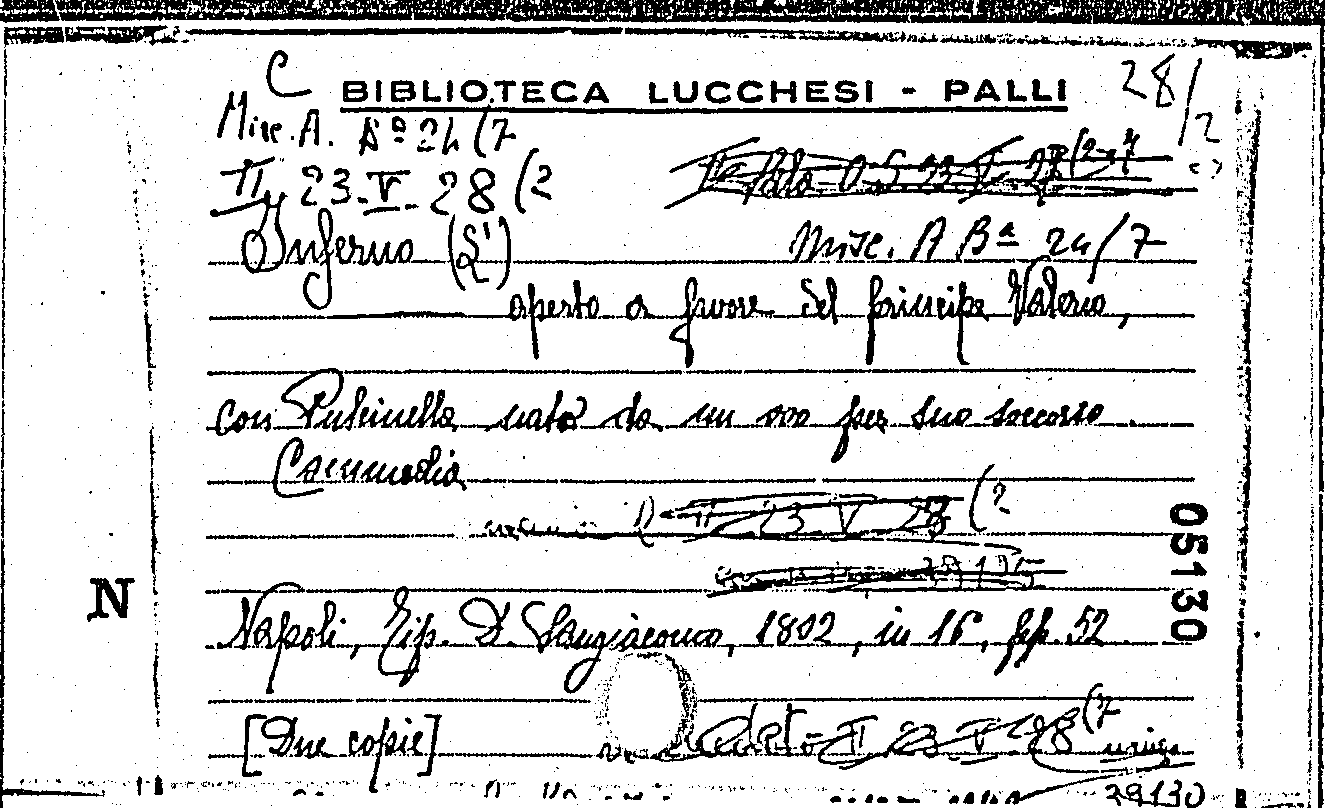 C BIBLIOTECA LUCCHESI - PALLI 28/2
Misc. A. Bª 24 (7
II 23. V. 28 (2
Inferno (L') Misc. A Bª 24/7
aperto a favore del principe Valerio,
con Pulcinella nato da un ovo per suo soccorso.
Commedia
II 23 V 28 (2
05130
N
Napoli, Tip. D. Sangiacomo, 1802, in 16, pp. 52
[Due copie] II 23 V 28 (7
39130